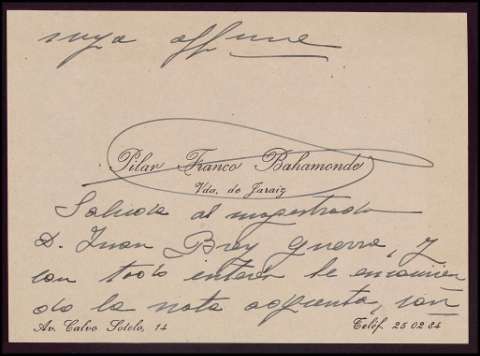 suya affma
Pilar Franco Bahamonde
Vda. de Jaraiz
Saluda al magistrado
D. Juan Brey Guerra, y
con todo interés le encomien
do la nota adjunta,
Av. Calvo Sotelo, 14
Teléf. 25 02 84